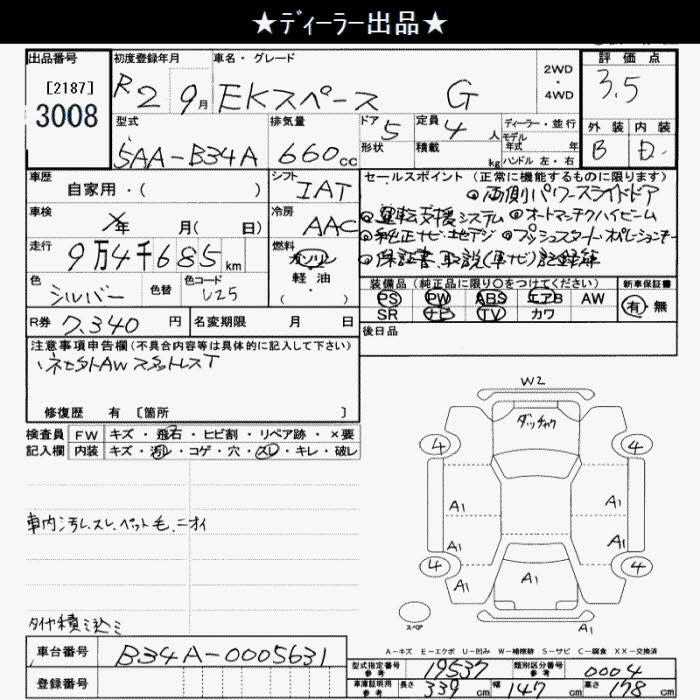 ★ディーラー出品★
出品番号
[2187]
3008
初度登録年月
R2 9月
車名・グレード
EKスペース G
2WD
・
4WD
評価点
3.5
外装 内装
B D
型式
5AA-B34A
排気量
660cc
ドア 5
形状
定員 4人
積載 kg
ディーラー・並行
モデル
年式 年
ハンドル 左・右
車歴
自家用・( )
シフト
IAT
車検
年 月( 日)
冷房
AAC
走行
9万4千685km
燃料
ガソリン
・
軽油
( )
色
シルバー
色替
色コード
U25
セールスポイント(正常に機能するものに限ります)
◎両側パワースライドドア
◎運転支援システム ◎オートマチックハイビーム
◎純正ナビ・地デジ ◎プッシュスタート・オペレーションキー
◎保証書、取説(車ナビ)記録簿
装備品(純正品に限り○をつけてください)
新車保証書
PS PW ABS エアB AW
SR ナビ TV カワ
有・無
R券 7,340円
名変期限 月 日
後日品
注意事項申告欄(不具合内容等は具体的に記入して下さい)
社外AWスタットレスT
修復歴 有 〔箇所 〕
検査員
記入欄
FW キズ・飛石・ヒビ割・リペア跡・×要
内装 キズ・汚レ・コゲ・穴・スレ・キレ・破レ
車内汚れ、スレ、ペット毛、ニオイ
タイヤ積ミ込ミ
W2
ダッチャク
4 4
A1 A1
A1 A1
4 4
A1 A1
スペア
A-キズ E-エクボ U-凹み W-補修跡 S-サビ C-腐食 XX-交換済
車台番号
B34A-0005631
登録番号
型式指定番号
参考
19537
類別区分番号
参考
0004
車庫証明用
参考
長さ 339cm
幅 147cm
高さ 178cm